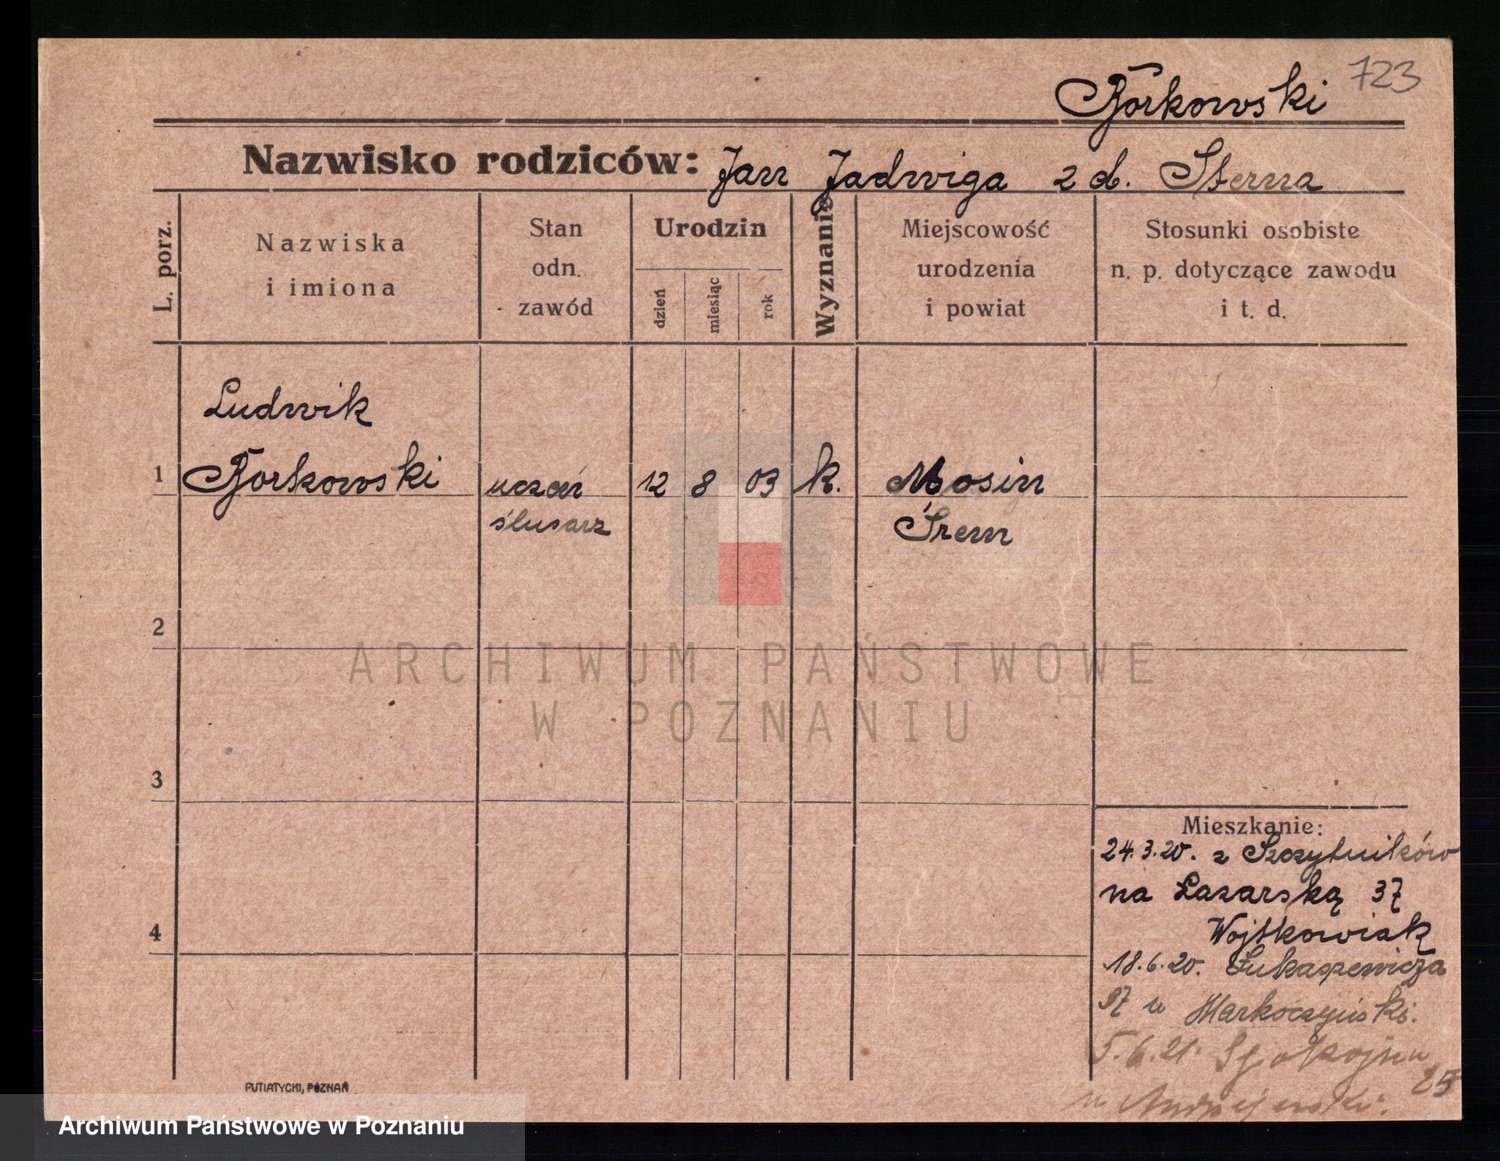 723
Borkowski
Nazwisko rodziców: Jan Jadwiga z d. Sterna
L. porz.
Nazwiska
i imiona
Stan
odn.
zawód
Urodzin
dzień
miesiąc
rok
Wyznanie
Miejscowość
urodzenia
i powiat
Stosunki osobiste
n. p. dotyczące zawodu
i t. d.
Ludwik
1 Borkowski uczeń 12 8 03 k. Mosin
ślusarz Śrem
2
3
4
Mieszkanie:
24.3.20. z Szczytników
na Łazarską 37
Wojtkowiak
18.6.20. Łukaszewicza
37 u
5.6.21.
25
u
PUTIATYCKI, POZNAŃ
ARCHIWUM PAŃSTWOWE
W POZNANIU
Archiwum Państwowe w Poznaniu